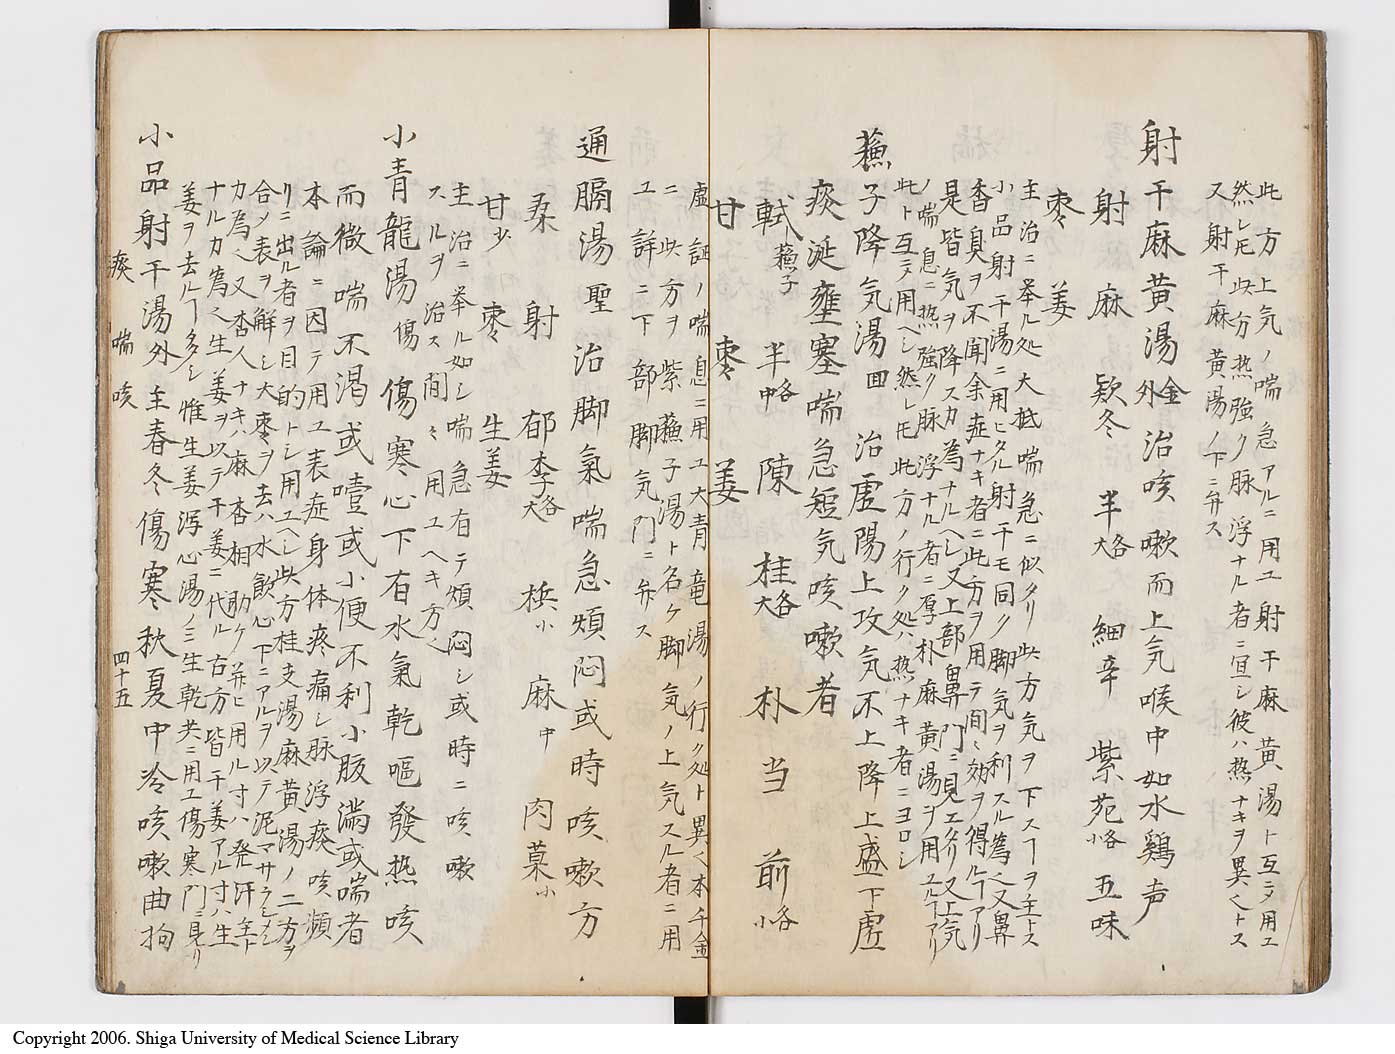 此方上気ノ喘急アルニ用ユ射干麻黄湯ト互ニ用ユ
然レ𪜈此方熱強ク脉浮ナル者ニ宜シ彼ハ熱ナキヲ異ヘトス
又射干麻黄湯ノ下ニ弁ス
射干麻黄湯 金 外 治咳嗽而上気喉中如水鷄声
射 麻 欵冬 半 各大 細辛 紫菀 各小 五味
棗 姜
主治ニ挙ル処大抵喘急ニ似タリ此方気ヲ下スヿヲ主トス
小品射干湯ニ用ヒタル射干モ同ク脚気ヲ利スル為ヘ又鼻
香臭ヲ不聞余症ナキ者ニ此方ヲ用テ間〻効ヲ得ルヿアリ
是皆気ヲ降スカ為ナルヘシ又上部鼻門ニ見エタリ又上気
ノ喘息ニ熱強ク脉浮ナル者ニ厚朴麻黄湯ヲ用ユルヿアリ
此ト互ニ用ヘシ然レ𪜈此方ノ行ク処ハ熱ナキ者ニヨロシ
蘓子降気湯 回 治虚陽上攻気不上降上盛下虚
痰涎壅塞喘急短気咳嗽者
軾 蘓子 半 各中 陳 桂 各大 朴 当 前 各小
甘 棗 姜
虚証ノ喘息ニ用ユ大青竜湯ノ行ク処ト異ヘ本千金
ニ此方ヲ紫蘓子湯ト名ケ脚気ノ上気スル者ニ用
ユ詳ニ下部脚気門ニ弁ス
通膈湯 聖 治脚氣喘急煩悶或時咳嗽方
桒 射 郁李 各大 梹 小 麻 中 肉菓 小
甘 少 棗 生姜
主治ニ挙ル如シ喘急有テ煩悶シ或時ニ咳嗽
スルヲ治ス間〻用ユヘキ方ヘ
小青龍湯 傷 傷寒心下有水氣乾嘔發热咳
而微喘不渇或噎或小便不利小腹満或喘者
本論ニ因テ用ユ表症身体疼痛シ脉浮痰咳頻
リニ出ル者ヲ目的トシ用ユヘシ此方桂支湯麻黄湯ノ二方ヲ
合メ表ヲ解シ大棗ヲ去ハ水飲心下ニアルヲ以テ泥マサラシメン
カ為ヘ又杏人ナキハ麻杏相助ケ并ヒ用ル寸ハ発汗主ト
ナルカ為ヘ生姜ヲ以テ干姜ニ代ル古方皆干姜アル寸ハ生
姜ヲ去ルヿ多シ惟生姜瀉心湯ノミ生乾共ニ用ユ傷寒門ニ見リ
小品射干湯 外 主春冬傷寒秋夏中冷咳嗽曲拘
痰 喘 咳 四十五
Copyright 2006. Shiga University of Medical Science Library